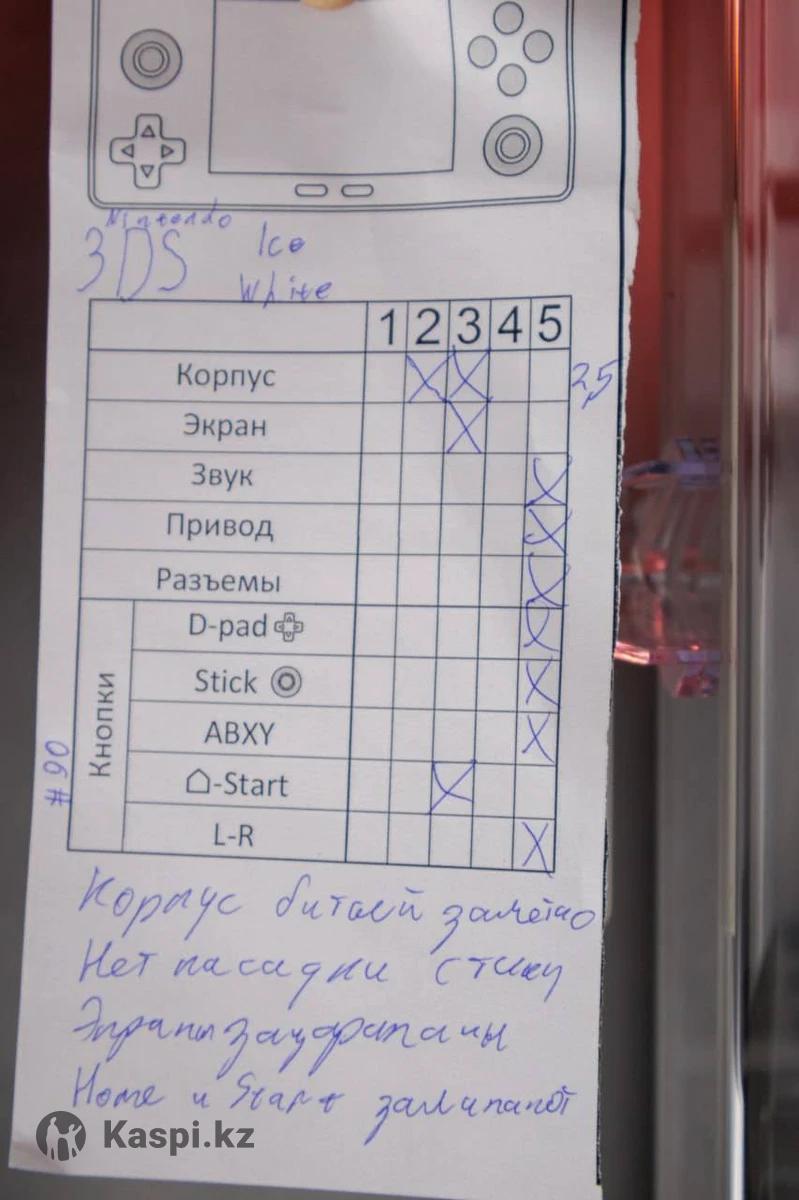 Nintendo
3DS Ice
White
1 2 3 4 5
Корпус X X 2,5
Экран X
Звук X
Привод X
Разъемы X
Кнопки
D-pad X
Stick X
ABXY X
-Start X
L-R X
#90
Корпус битый заметно
Нет насадки стику
Экраны зацарапаны
Home и Start залипают
Kaspi.kz